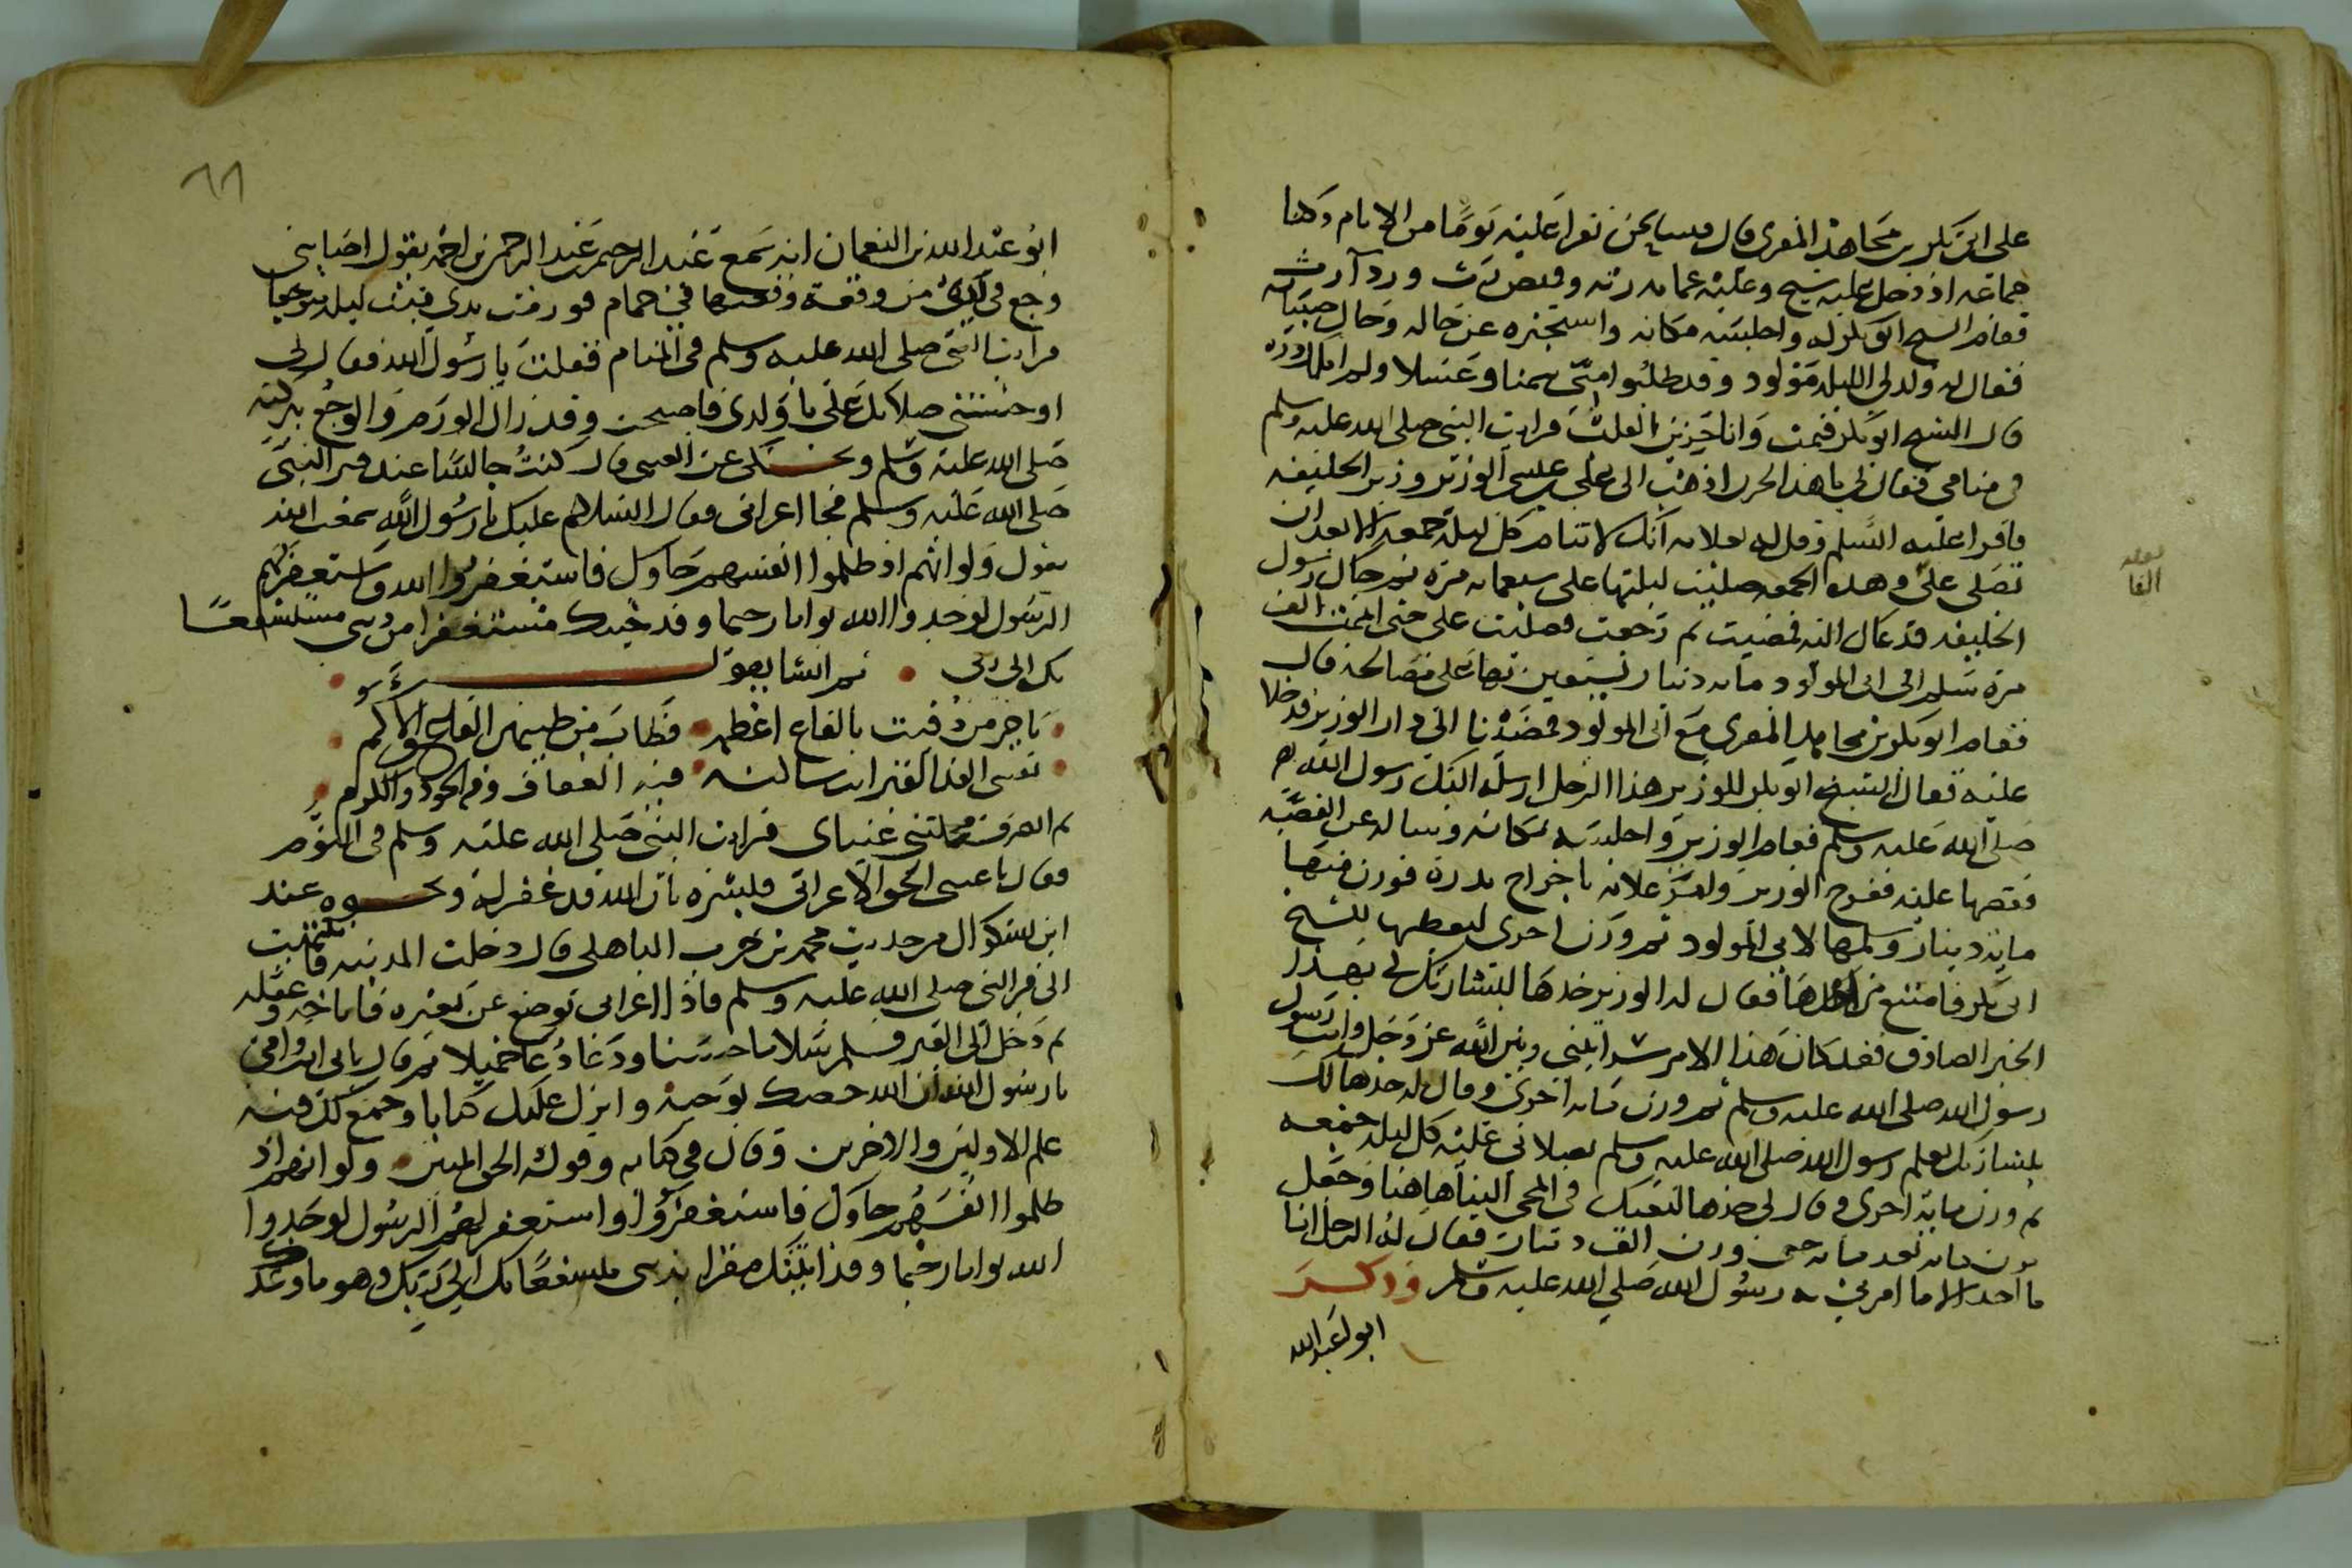 على ابى بكر بن مجاهد المقرى قال فبينا نحن نقرا عليه يوما من الايام وكنا
جماعه اذ دخل عليه شيخ وعليه عمامه رثه وقميص رث وردآ رث
فقام الشيخ ابو بكر له واجلسه مكانه واستخبره عن حاله وحال صبيانه
فقال له ولد لى الليله مولود وقد طلبوا منى سمنا وعسلا ولم املك ذره
قال الشيخ ابو بكر فنمت وانا حزين القلب فرايت النبى صلى الله عليه وسلم
فى منامى فقال لى ما هذا الحزن اذهب الى على بن عيسى الوزير وزير الخليفه
فاقرا عليه السلم وقل له بعلامه انك لا تنام كل ليلة جمعه الا بعد ان
تصلى على وهذه الجمعه صليت ليلتها على سبعمايه مره ثم جاك رسول
الخليفه فدعاك اليه فمضيت ثم رجعت فصليت على حتى اتممت الف
مره سلم الى ابى المولود مايه دينار يستعين بها على مصالحه قال
فقام ابو بكر بن مجاهد المقرى مع ابى المولود فمضيا الى دار الوزير فدخلا
عليه فقال الشيخ ابو بكر للوزير هذا الرجل ارسله اليك رسول الله
صلى الله عليه وسلم فقام الوزير واجلسه مكانه وساله عن القصه
فقصها عليه ففرح الوزير وامر غلامه باخراج بدره فوزن منها
مايه دينار وسلمها لابى المولود ثم وزن اخرى ليعطيها للشيخ
ابى بكر فامتنع من اخذها فقال له الوزير خذها لبشارتك لى بهذا
الخبر الصادق فقد كان هذا الامر سرا بينى وبين الله عز وجل وانت رسول
رسول الله صلى الله عليه وسلم ثم وزن مايه اخرى وقال له خذها لك
بشارتك بعلم رسول الله صلى الله عليه وسلم بصلاتى عليه كل ليله جمعه
ثم وزن مايه اخرى وقال لى خذها لتعبك فى المجى الينا هاهنا وجعل
يزن مايه بعد مايه حتى وزن الف دينار فقال له الرجل انا
ما اخذ الا ما امرنى به رسول الله صلى الله عليه وسلم وذكر
ابو عبد الله
الفا
٦٦
ابو عبد الله بن النعمان انه سمع عبد الرحيم بن عبد الرحمن بن احمد يقول اصابنى
وجع فى يدى من وقعة وقعتها فى حمام فورمت يدى فبت ليله متوجعا
فرايت النبى صلى الله عليه وسلم فى المنام فقلت يا رسول الله فقال لى
اوحشتنى صلاتك على يا ولدى فاصبحت وقد زال الورم والوجع ببركته
صلى الله عليه وسلم ويحكى عن العتبى قال كنت جالسا عند قبر النبى
صلى الله عليه وسلم فجا اعرابى فقال السلام عليك يا رسول الله سمعت الله
يقول ولو انهم اذ ظلموا انفسهم جاوك فاستغفروا الله واستغفر لهم
الرسول لوجدوا الله توابا رحيما وقد جيتك مستغفرا من ذنبى مستشفعا
بك الى ربى • ثم انشا يقول
يا خير من دفنت بالقاع اعظمه • فطاب من طيبهن القاع والاكم
نفسى الفدا لقبر انت ساكنه • فيه العفاف وفيه الجود والكرم
ثم انصرف فحملتنى عيناى فرايت النبى صلى الله عليه وسلم فى النوم
فقال يا عتبى الحق الاعرابى فبشره بان الله قد غفر له ونحوه عند
ابن بشكوال من حديث محمد بن حرب الباهلى قال دخلت المدينه فانتهيت
الى قبر النبى صلى الله عليه وسلم فاذا اعرابى يوضع عن بعيره فاناخه وعقله
ثم دخل الى القبر فسلم سلاما حسنا ودعا دعا جميلا ثم قال بابى انت وامى
يا رسول الله ان الله خصك بوحيه وانزل عليك كتابا وجمع لك فيه
علم الاولين والاخرين وقال فى كتابه وقوله الحق المبين • ولو انهم اذ
ظلموا انفسهم جاوك فاستغفروا الله واستغفر لهم الرسول لوجدوا
الله توابا رحيما وقد اتيتك مقرا بذنبى مستشفعا بك الى ربك وهو ما وعدك